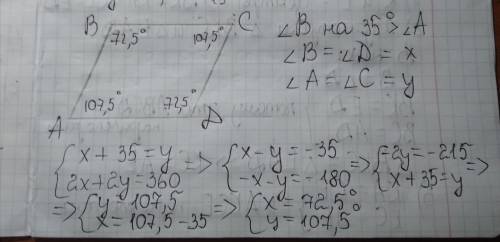 B C
72,5° 107,5°
107,5° 72,5°
A D
∠B на 35° > ∠A
∠B = ∠D = x
∠A = ∠C = y
{x + 35 = y
2x + 2y = 360 => {x - y = -35
-x - y = -180 => {-2y = -215
x + 35 = y =>
=> {y = 107,5
x = 107,5 - 35 => {x = 72,5°
y = 107,5°